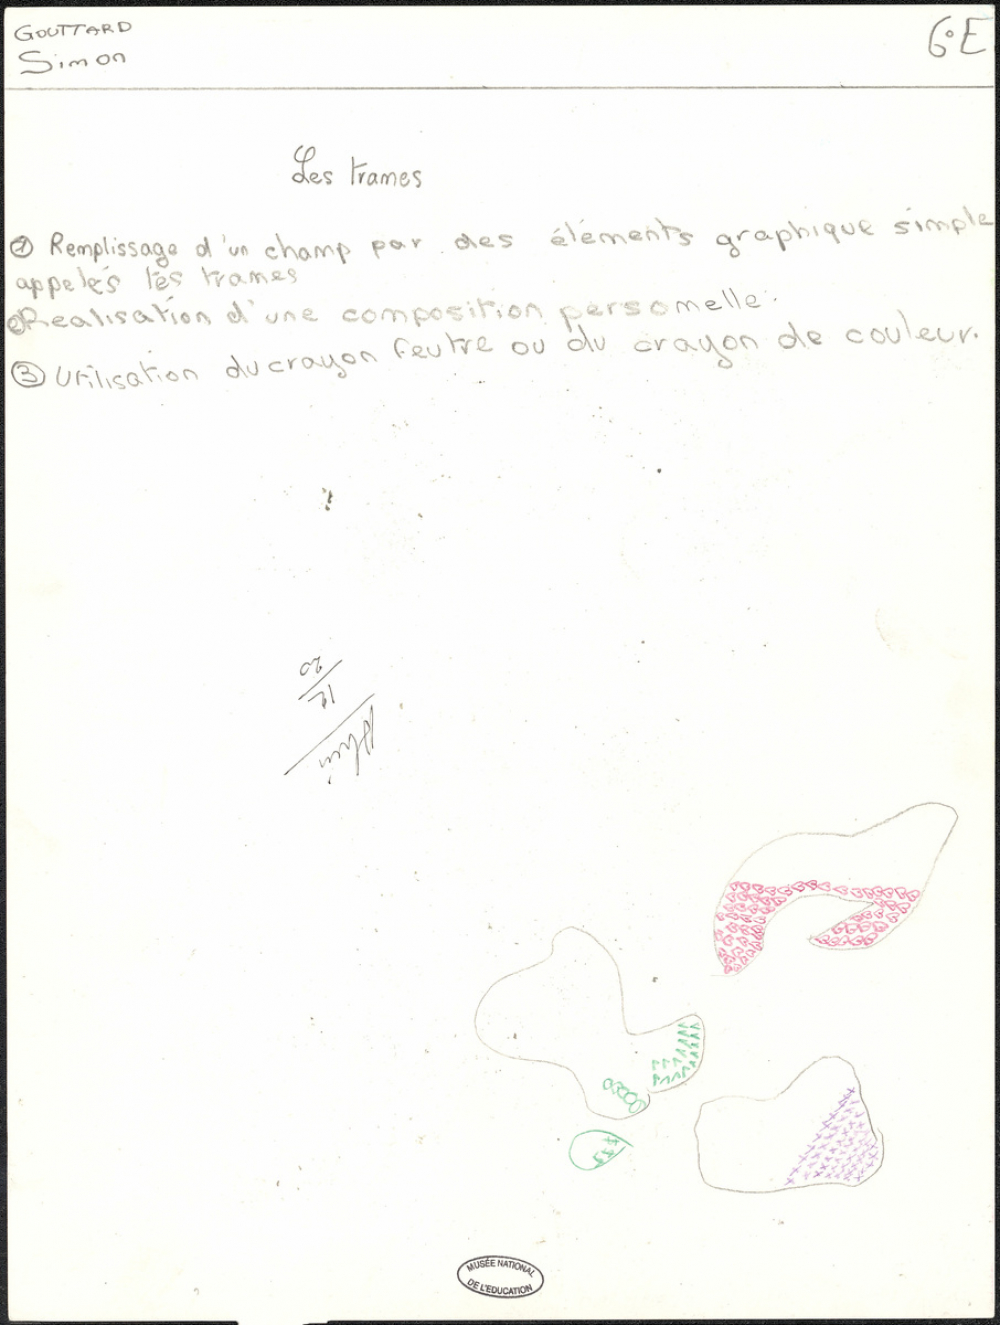 GOUTTARD
Simon
6°E
Les trames
① Remplissage d'un champ par des éléments graphique simple
appelés les trames
② Réalisation d'une composition personnelle.
③ Utilisation du crayon feutre ou du crayon de couleur.
12
20
MUSÉE NATIONAL
DE L'EDUCATION